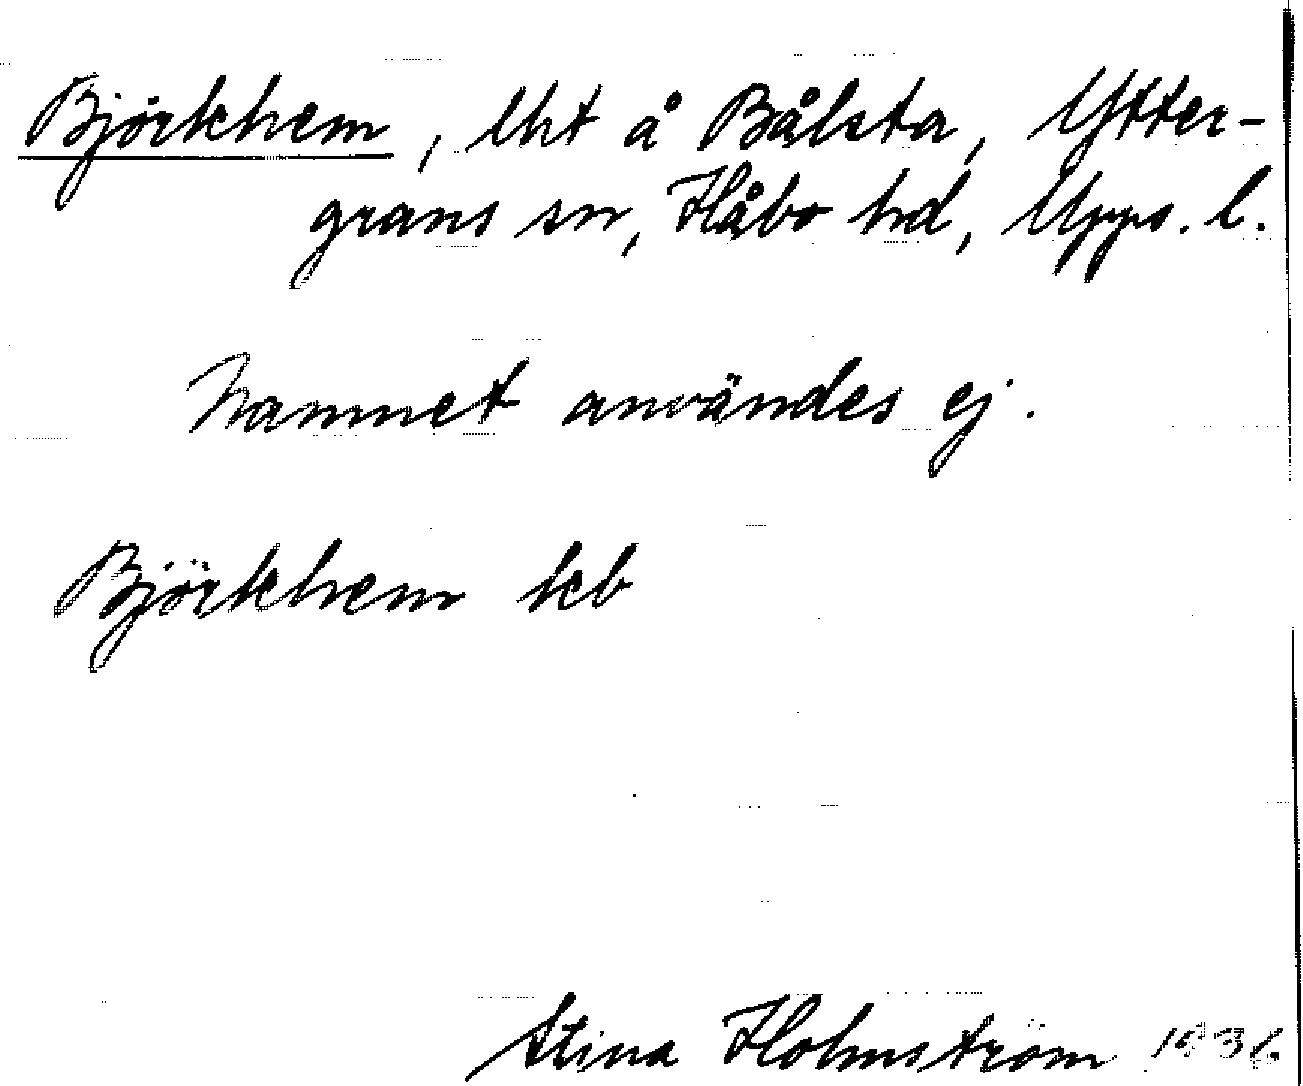 Björkhem, lht å Bålsta, Ytter-
grans sn, Håbo hd, Upps. l.
Namnet användes ej.
Björkhem kb
Stina Holmström 1936